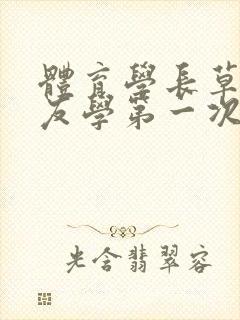 體育學長草
友學第一次
光含翡翠容